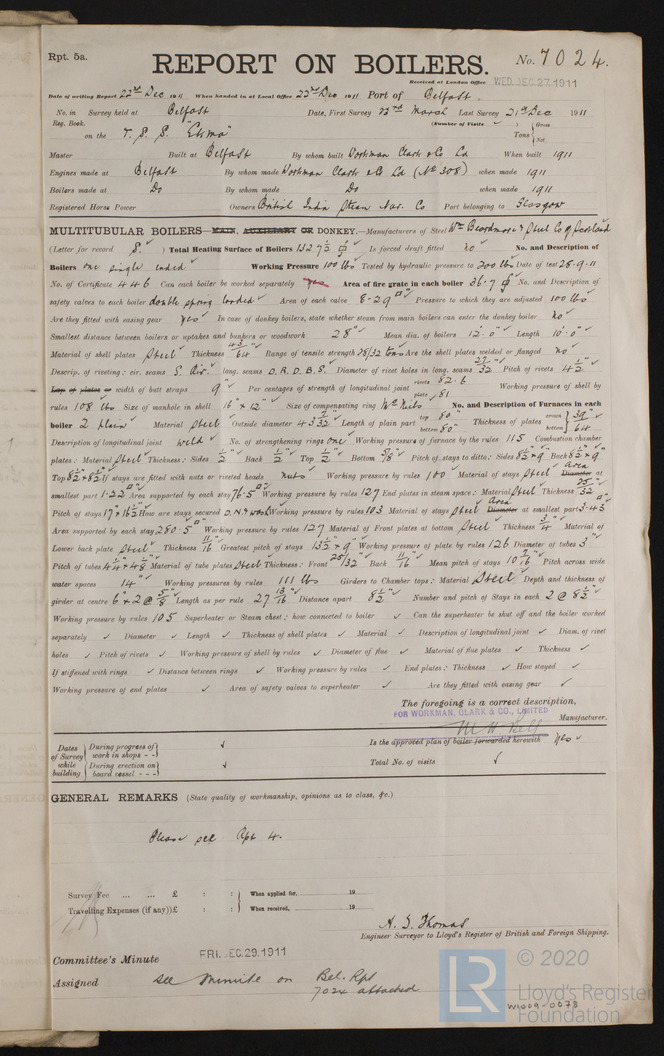 Rpt. 5a.
REPORT ON BOILERS.
No. 7024.
Received at London Office WED. DEC. 27. 1911
Date of writing Report 22nd Dec 1911 When handed in at Local Office 22nd Dec 1911 Port of Belfast.
No. in Survey held at Belfast Date, First Survey 23rd March Last Survey 21st Dec 1911
Reg. Book. (Number of Visits ) Gross
on the T. S. S. "Ekma" Tons Net
Master Built at Belfast By whom built Workman Clark & Co Ld When built 1911
Engines made at Belfast By whom made Workman Clark & Co Ld (No 308) when made 1911
Boilers made at Do By whom made Do when made 1911
Registered Horse Power Owners British India Steam Nav. Co Port belonging to Glasgow
MULTITUBULAR BOILERS MAIN, AUXILIARY OR DONKEY.—Manufacturers of Steel Wm Beardmore & Steel Co of Scotland
(Letter for record S. ) Total Heating Surface of Boilers 1327.5 Is forced draft fitted no No. and Description of
Boilers one single ended Working Pressure 100 lbs Tested by hydraulic pressure to 200 lbs Date of test 28.9.11
No. of Certificate 446 Can each boiler be worked separately yes Area of fire grate in each boiler 36.7 No. and Description of
safety valves to each boiler double spring loaded Area of each valve 8.29 □" Pressure to which they are adjusted 100 lbs
Are they fitted with easing gear yes In case of donkey boilers, state whether steam from main boilers can enter the donkey boiler no
Smallest distance between boilers or uptakes and bunkers or woodwork 28" Mean dia. of boilers 12'.0" Length 10'.0"
Material of shell plates Steel Thickness 43/64 Range of tensile strength 28/32 tons Are the shell plates welded or flanged no
Descrip. of riveting: cir. seams S. Riv. long. seams D.R.D.B.S. Diameter of rivet holes in long. seams 27/32 Pitch of rivets 4 1/2
Lap of plates or width of butt straps 9" Per centages of strength of longitudinal joint rivets 82.6 plate 81 Working pressure of shell by
rules 108 lbs Size of manhole in shell 16" x 12" Size of compensating ring No. and Description of Furnaces in each
boiler 2 plain Material Steel Outside diameter Length of plain part top 80" bottom 80" Thickness of plates crown 39 bottom 64
Description of longitudinal joint weld No. of strengthening rings one Working pressure of furnace by the rules 115 Combustion chamber
plates: Material Steel Thickness: Sides 1/2 Back 1/2 Top 1/2 Bottom 5/8 Pitch of stays to ditto: Sides 8 1/2 x 9 Back 8 1/2 x 9
Top 8 1/2 x 8 1/2 If stays are fitted with nuts or riveted heads nuts Working pressure by rules 100 Material of stays Steel Area Diameter at
smallest part 1.22 □" Area supported by each stay 76.5 □" Working pressure by rules 127 End plates in steam space: Material Steel Thickness 25/32
Pitch of stays 17 x 16 1/2 How are stays secured D.N. & wash Working pressure by rules 103 Material of stays Steel Area Diameter at smallest part 3.43
Area supported by each stay 280.5 □" Working pressure by rules 127 Material of Front plates at bottom Steel Thickness 3/4 Material of
Lower back plate Steel Thickness 11/16 Greatest pitch of stays 13 1/2 x 9 Working pressure of plate by rules 126 Diameter of tubes 3"
Pitch of tubes Material of tube plates Steel Thickness: Front 25/32 Back 11/16 Mean pitch of stays Pitch across wide
water spaces 14" Working pressures by rules 111 lbs Girders to Chamber tops: Material Steel Depth and thickness of
girder at centre 6" x 2 @ 5/8 Length as per rule 27 13/16 Distance apart 8 1/2" Number and pitch of Stays in each 2 @ 8 1/2"
Working pressure by rules 105 Superheater or Steam chest; how connected to boiler ✓ Can the superheater be shut off and the boiler worked
separately ✓ Diameter ✓ Length ✓ Thickness of shell plates ✓ Material ✓ Description of longitudinal joint ✓ Diam. of rivet
holes ✓ Pitch of rivets ✓ Working pressure of shell by rules ✓ Diameter of flue ✓ Material of flue plates ✓ Thickness ✓
If stiffened with rings ✓ Distance between rings ✓ Working pressure by rules ✓ End plates: Thickness ✓ How stayed ✓
Working pressure of end plates ✓ Area of safety valves to superheater ✓ Are they fitted with easing gear ✓
The foregoing is a correct description,
FOR WORKMAN, CLARK & CO., LIMITED
Manufacturer.
Dates of Survey while building
During progress of work in shops - -
During erection on board vessel - - -
Is the approved plan of boiler forwarded herewith Yes
Total No. of visits
GENERAL REMARKS (State quality of workmanship, opinions as to class, &c.)
Please see Rpt 4.
Survey Fee ... ... £ : : When applied for, 19
Travelling Expenses (if any) £ : : When received, 19
A. J. Thomas
Engineer Surveyor to Lloyd's Register of British and Foreign Shipping.
Committee's Minute FRI. DEC. 29. 1911
Assigned see minute on Bel. Rpt
7024 attached
© 2020
LR
Lloyd's Register
Foundation
W1009-0078